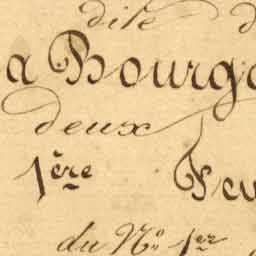 dite d
a Bourgo
deux
1ère Feu
du N° 1er